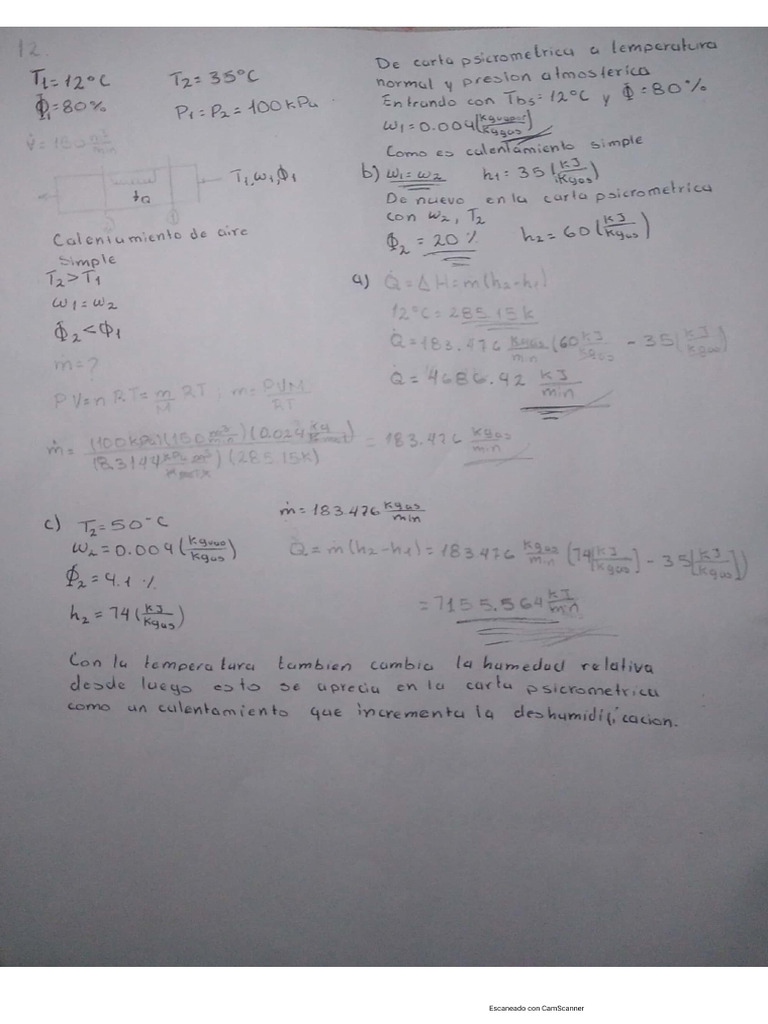 12.
T₁=12°C T₂=35°C
Φ₁=80% P₁=P₂=100KPa
V̇=150 m³/min
T₁,ω₁,Φ₁
Calentamiento de aire
simple
T₂>T₁
ω₁=ω₂
Φ₂<Φ₁
ṁ=?
PV=nRT=m/M RT; m=PVM/RT
= 183.476 Kgas/min
De carta psicrometrica a temperatura
normal y presion atmosferica
Entrando con Tbs=12°C y Φ=80%
ω₁=0.004(Kgvapor/Kggas)
Como es calentamiento simple
b) ω₁=ω₂ h₁=35(KJ/Kgas)
De nuevo en la carta psicrometrica
con ω₂, T₂
Φ₂=20% h₂=60(KJ/Kgas)
a) Q̇=ΔH=ṁ(h₂-h₁)
12°C=285.15K
Q̇=183.476 Kgas/min (60 KJ/Kgas - 35(KJ/Kgas)
Q̇=4686.92 KJ/min
c) T₂=50°C ṁ=183.476 Kgas/min
ω₂=0.004(Kgvap/Kgas) Q̇=ṁ(h₂-h₁)=183.476 Kgas/min (74[KJ/Kgas]-35[KJ/Kgas])
Φ₂=4.1%
h₂=74(KJ/Kgas) =7155.564 KJ/min
Con la temperatura tambien cambia la humedad relativa
desde luego esto se aprecia en la carta psicrometrica
como un calentamiento que incrementa la deshumidificacion.
Escaneado con CamScanner